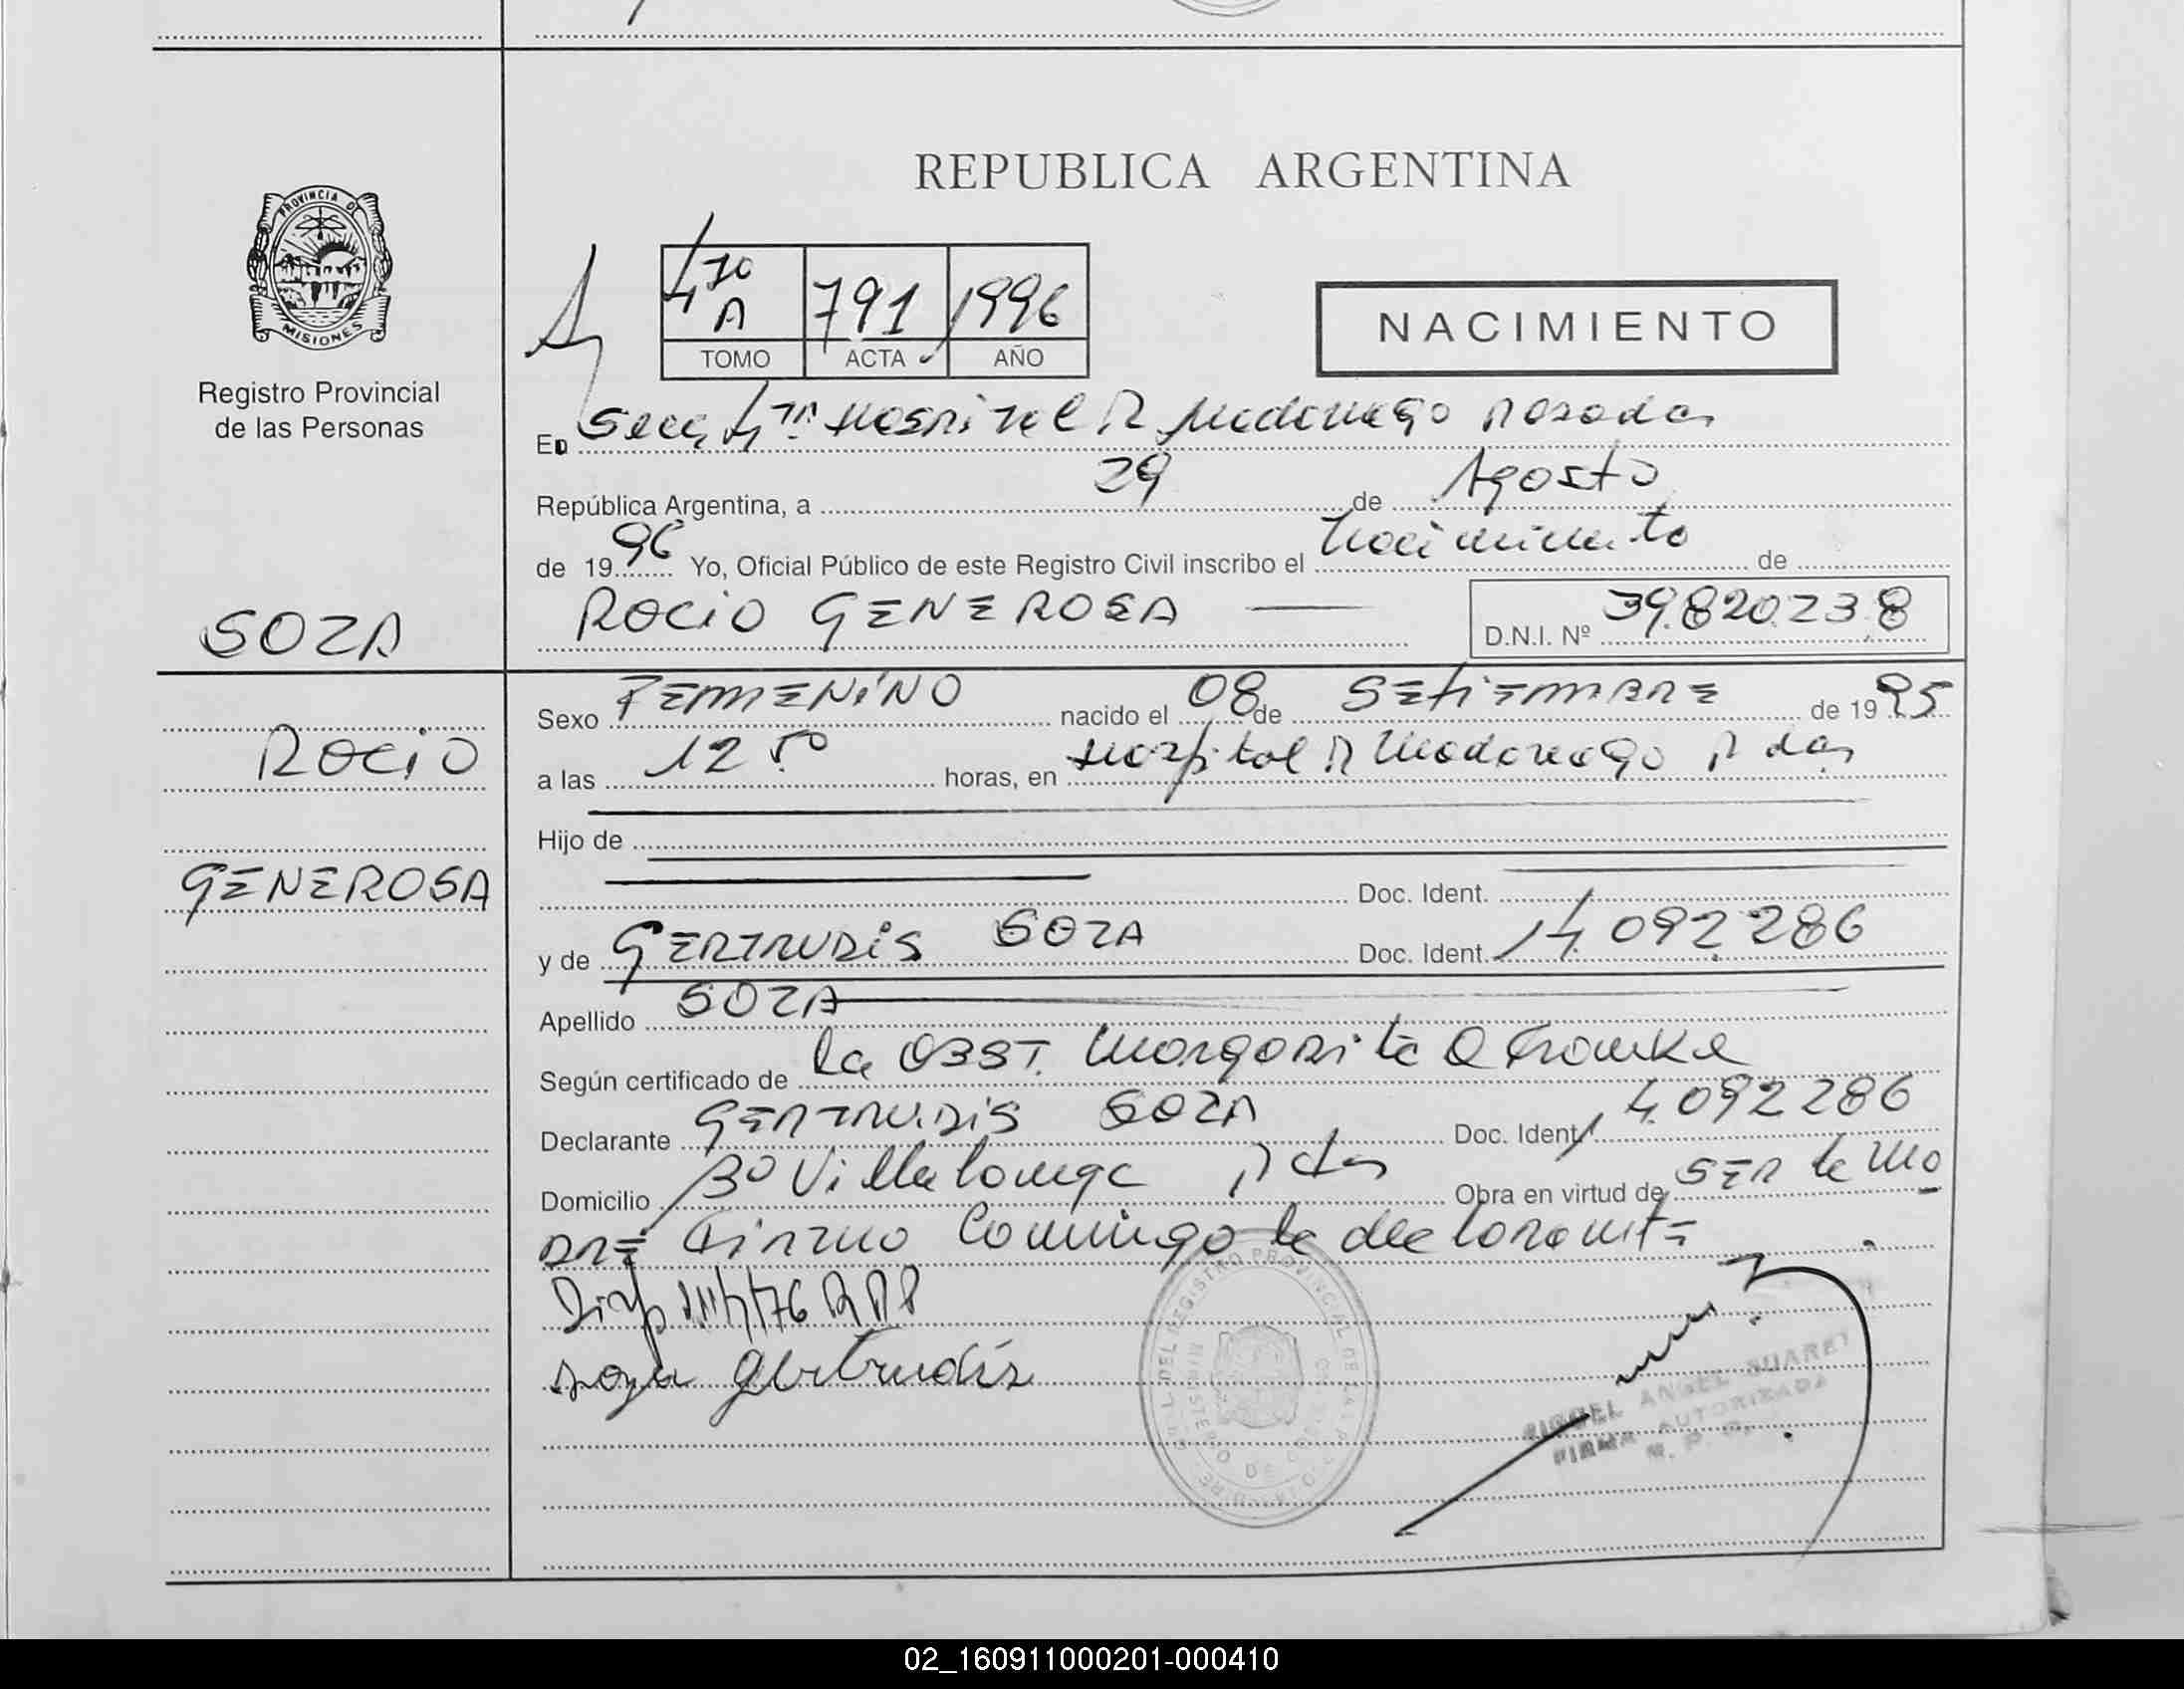 REPUBLICA ARGENTINA
PROVINCIA DE
MISIONES
Registro Provincial
de las Personas
4to A 791 1996
TOMO ACTA AÑO
NACIMIENTO
En Secc 4ta Hospital R Madariaga Posadas
República Argentina, a 29 de Agosto
de 1996 Yo, Oficial Público de este Registro Civil inscribo el Nacimiento de
ROCIO GENEROSA D.N.I. Nº 39.820.238
SOZA
ROCIO
GENEROSA
Sexo FEMENINO nacido el 08 de SETIEMBRE de 1995
a las 12 50 horas, en Hospital R Madariaga Pdas
Hijo de
Doc. Ident.
y de GERTRUDIS SOZA Doc. Ident. 14.092.286
Apellido SOZA
Según certificado de la OBST. Margarita
Declarante GERTRUDIS SOZA Doc. Ident. 14.092286
Domicilio Bº Villalonga Pdas Obra en virtud de SER la MA
DRE Firmo Conmigo la declarante
Disp /76 RPP
soza gertrudis
MIGUEL ANGEL SUAREZ
FIRMA AUTORIZADA
R. P. P.
02_160911000201-000410